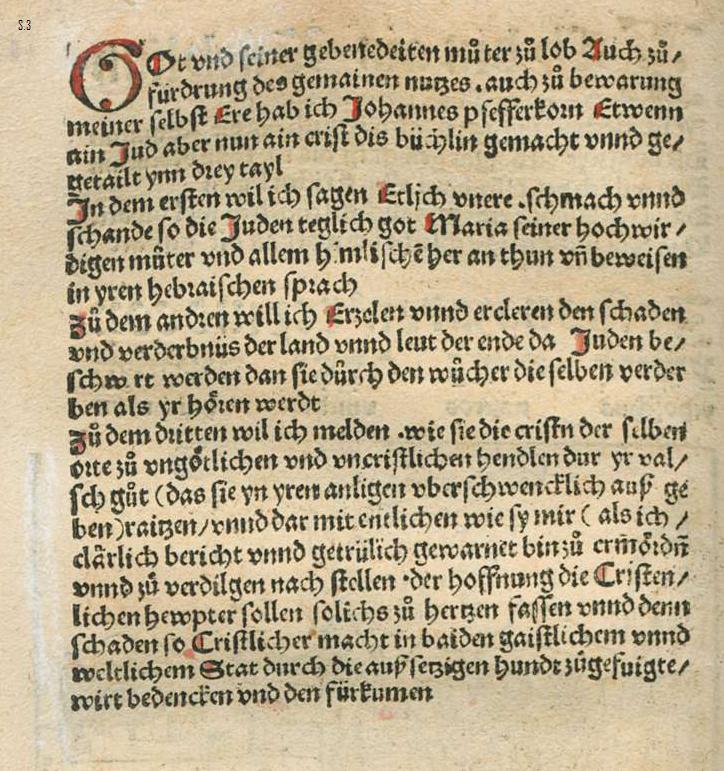 S.3
GOt vnd seiner gebenedeiten můter zů lob Auch zů/
fürdrung des gemainen nutzes .auch zů bewarung
meiner selbst Ere hab ich Johannes pfefferkorn Etwenn
ain Jud aber nun ain crist dis büchlin gemacht vnnd ge/
getailt ynn drey tayl
In dem ersten wil ich sagen Etlich vnere .schmach vnnd
schande so die Juden teglich got Maria seiner hochwir/
digen můter vnd allem himlischē her an thun vn̄ beweisen
in yren hebraischen sprach
Zů dem andren will ich Erzelen vnnd ercleren den schaden
vnd verderbnüs der land vnnd leut der ende da Juden be/
schw rt werden dan sie dürch den wůcher die selben verder
ben als yr hören werdt
Zů dem dritten wil ich melden .wie sie die cristn der selben
orte zů vngötlichen vnd vncristlichen hendlen dur yr val/
sch gůt (das sie yn yren anligen vberschwencklich auß ge
ben)raitzen/vnnd dar mit entlichen wie sy mir ( als ich /
clärlich bericht vnnd getrülich gewarnet bin zů ermördn̄
vnnd zů verdilgen nach stellen .der hoffnung die Cristen/
lichen hewpter sollen solichs zů hertzen fassen vnnd denn
schaden so Cristlicher macht in baiden gaistlichem vnnd
weltlichem Stat durch die außsetzigen hundt zůgefuigte/
wirt bedencken vnd den fürkumen